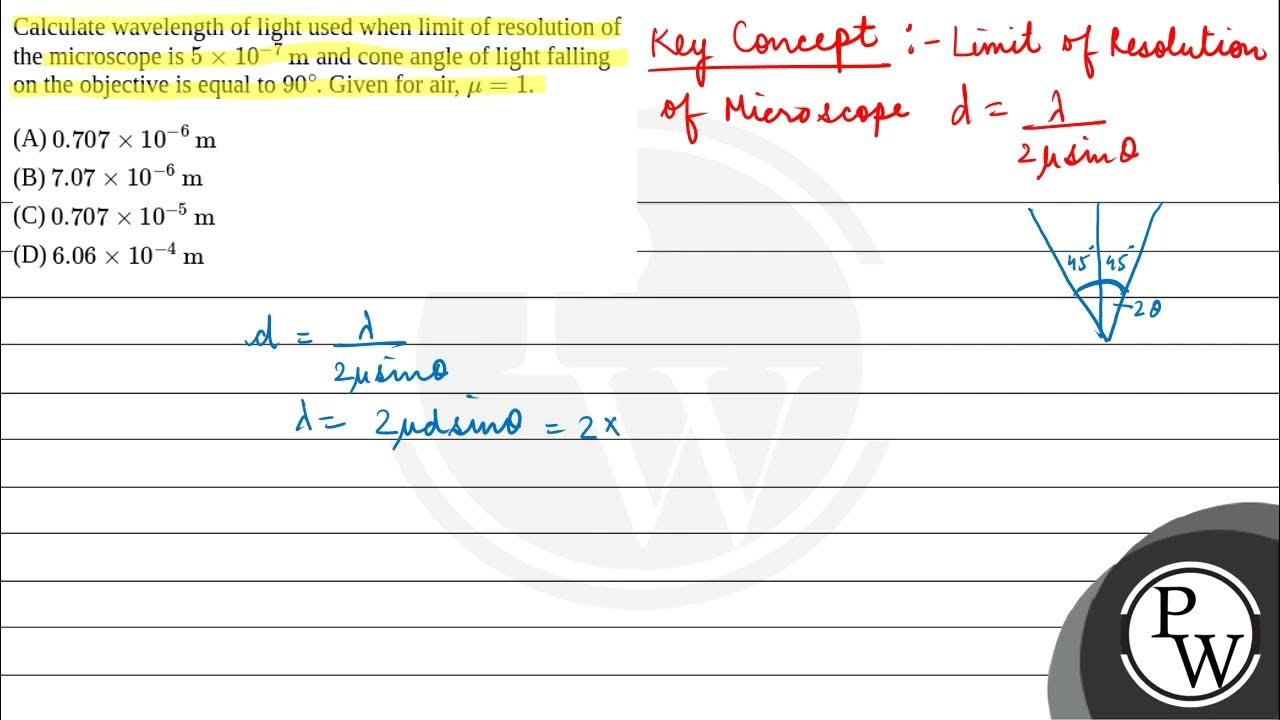 Calculate wavelength of light used when limit of resolution of
the microscope is 5 × 10⁻⁷ m and cone angle of light falling
on the objective is equal to 90°. Given for air, μ = 1.
(A) 0.707 × 10⁻⁶ m
(B) 7.07 × 10⁻⁶ m
(C) 0.707 × 10⁻⁵ m
(D) 6.06 × 10⁻⁴ m
Key Concept :- Limit of Resolution
of Microscope d = λ / 2μ sinθ
45° 45°
2θ
d = λ / 2μ sinθ
λ = 2μd sinθ = 2 ×
PW
PW